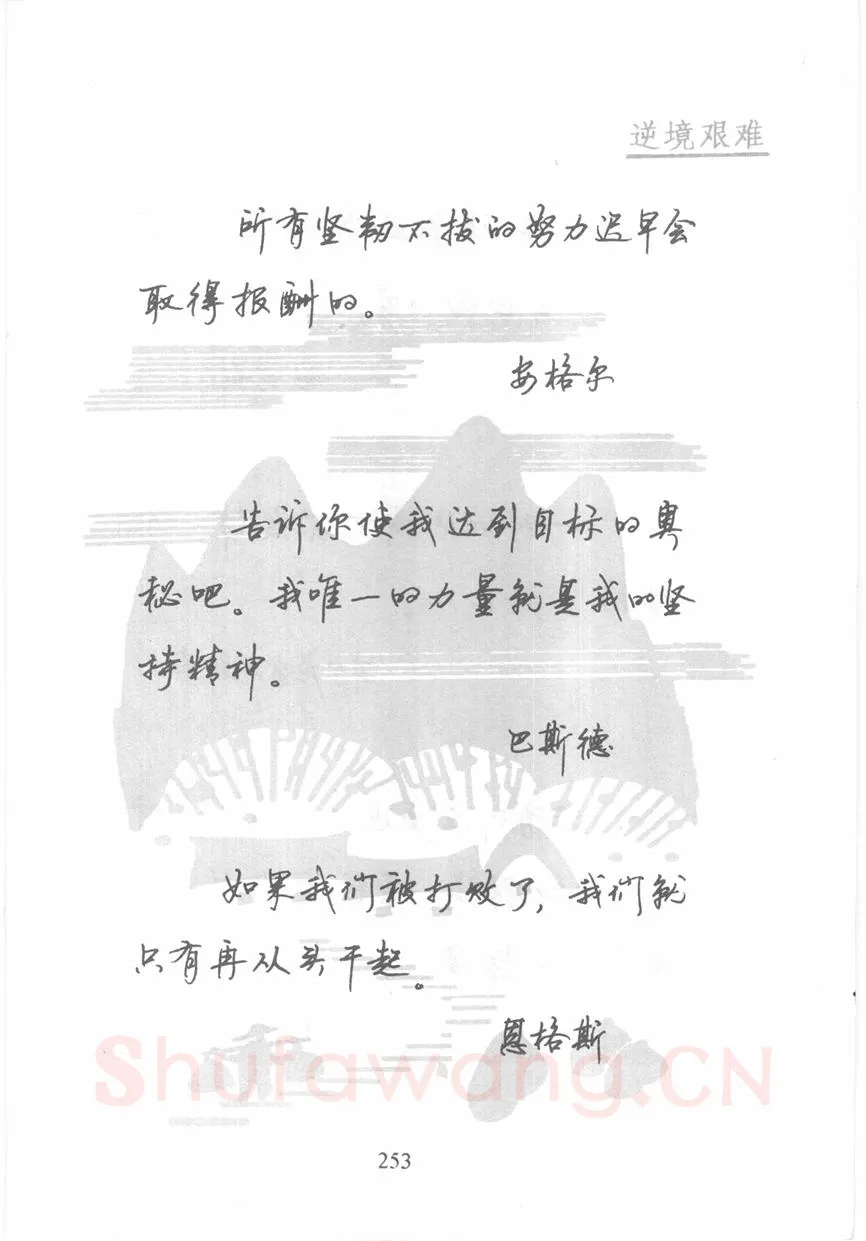 逆境艰难
所有坚韧不拔的努力迟早会
取得报酬的。
安格尔
告诉你使我达到目标的奥
秘吧。我唯一的力量就是我的坚
持精神。
巴斯德
如果我们被打败了,我们就
只有再从头干起。
恩格斯
Shufawang.CN
253